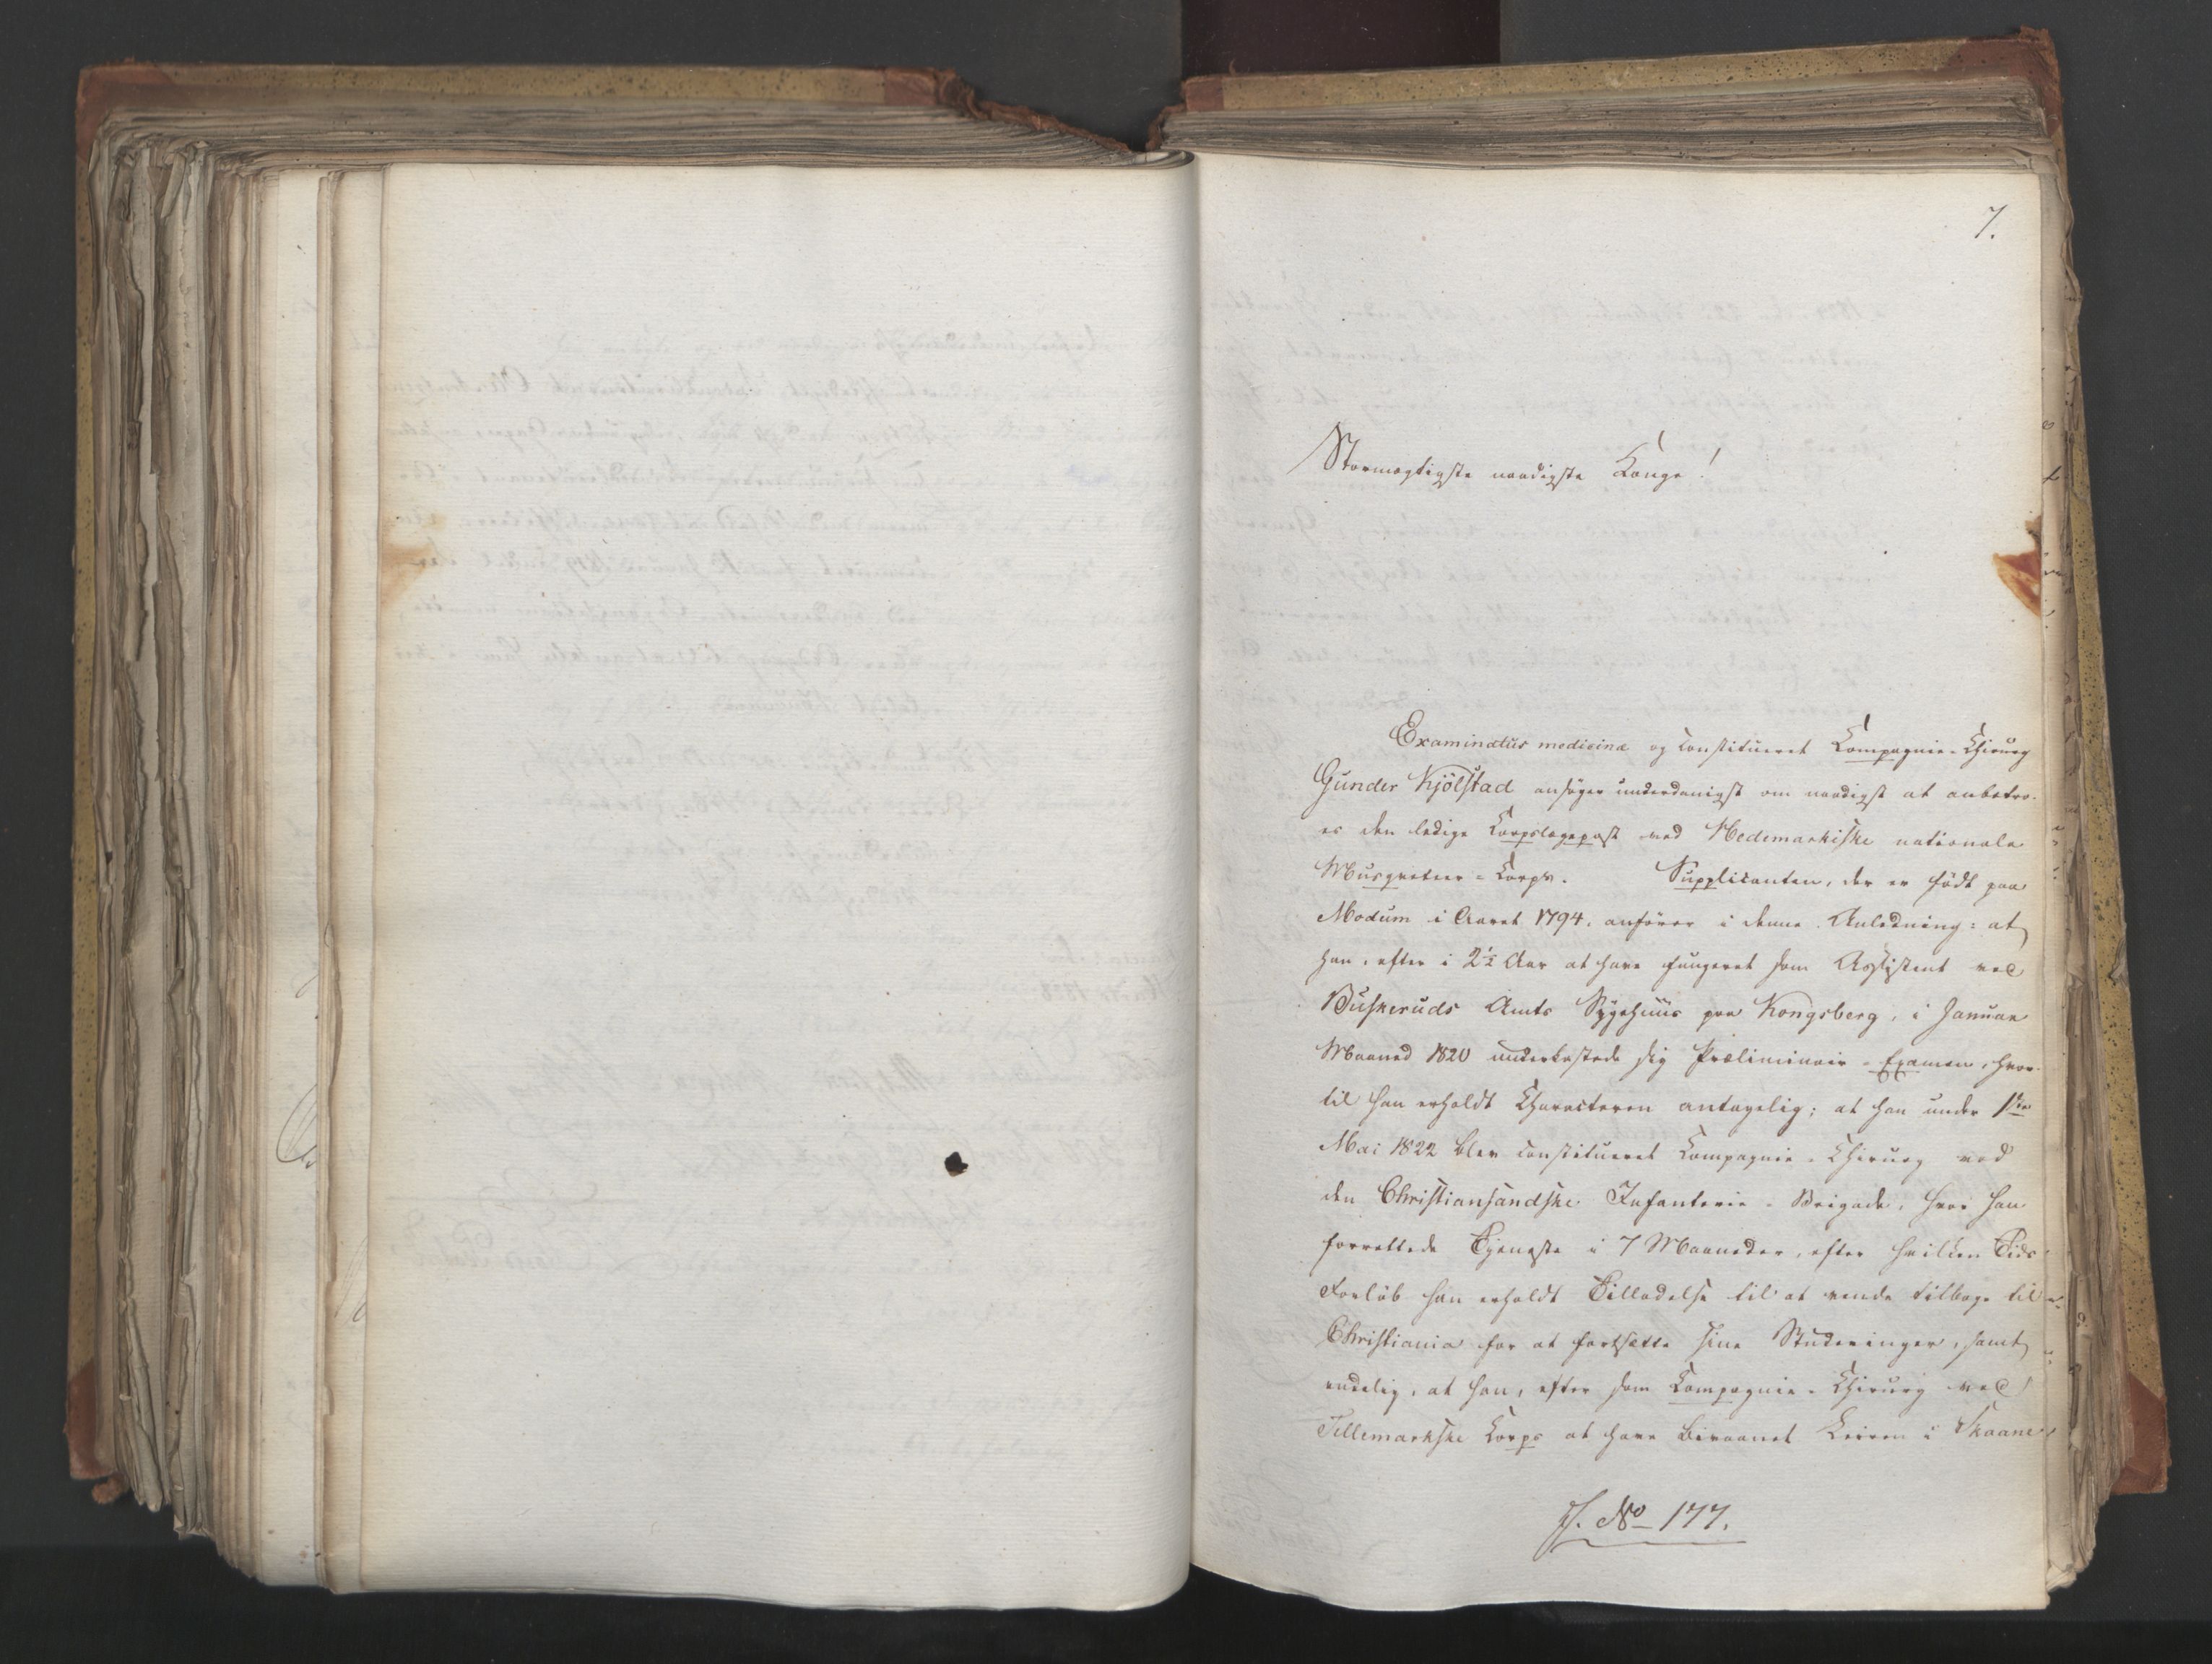 7.
Stormægtigste naadigste Konge!
Examinatus medicinæ og constitueret Compagnie-Chirurg
Gunder Kjölstad ansøger underdanigst om naadigst at anbetro-
es den ledige Corpslægepost ved Hedemarkiske nationale
Musqueteer-Corps. Supplicanten, der er födt paa
Modum i Aaret 1794, anförer i denne Anledning: at
han, efter i 2½ Aar at have fungeret som Assistent ved
Buskeruds Amts Sygehuus paa Kongsberg, i Januar
Maaned 1820 underkastede sig Præliminair-Examen, hvor-
til han erholdt Characteren antagelig; at han under 1ste
Mai 1822 blev constitueret Compagnie-Chirurg ved
den Christiansandske Infanterie-Brigade, hvor han
forrettede Tjeneste i 7 Maaneder, efter hvilken Tids
Forløb han erholdt Tilladelse til at vende tilbage til
Christiania for at fortsætte sine Studeringer, samt
endelig, at han, efter som Compagnie-Chirurg ved
Tellemarkske Corps at have bivaanet Leiren i Skaane
J. No 177.